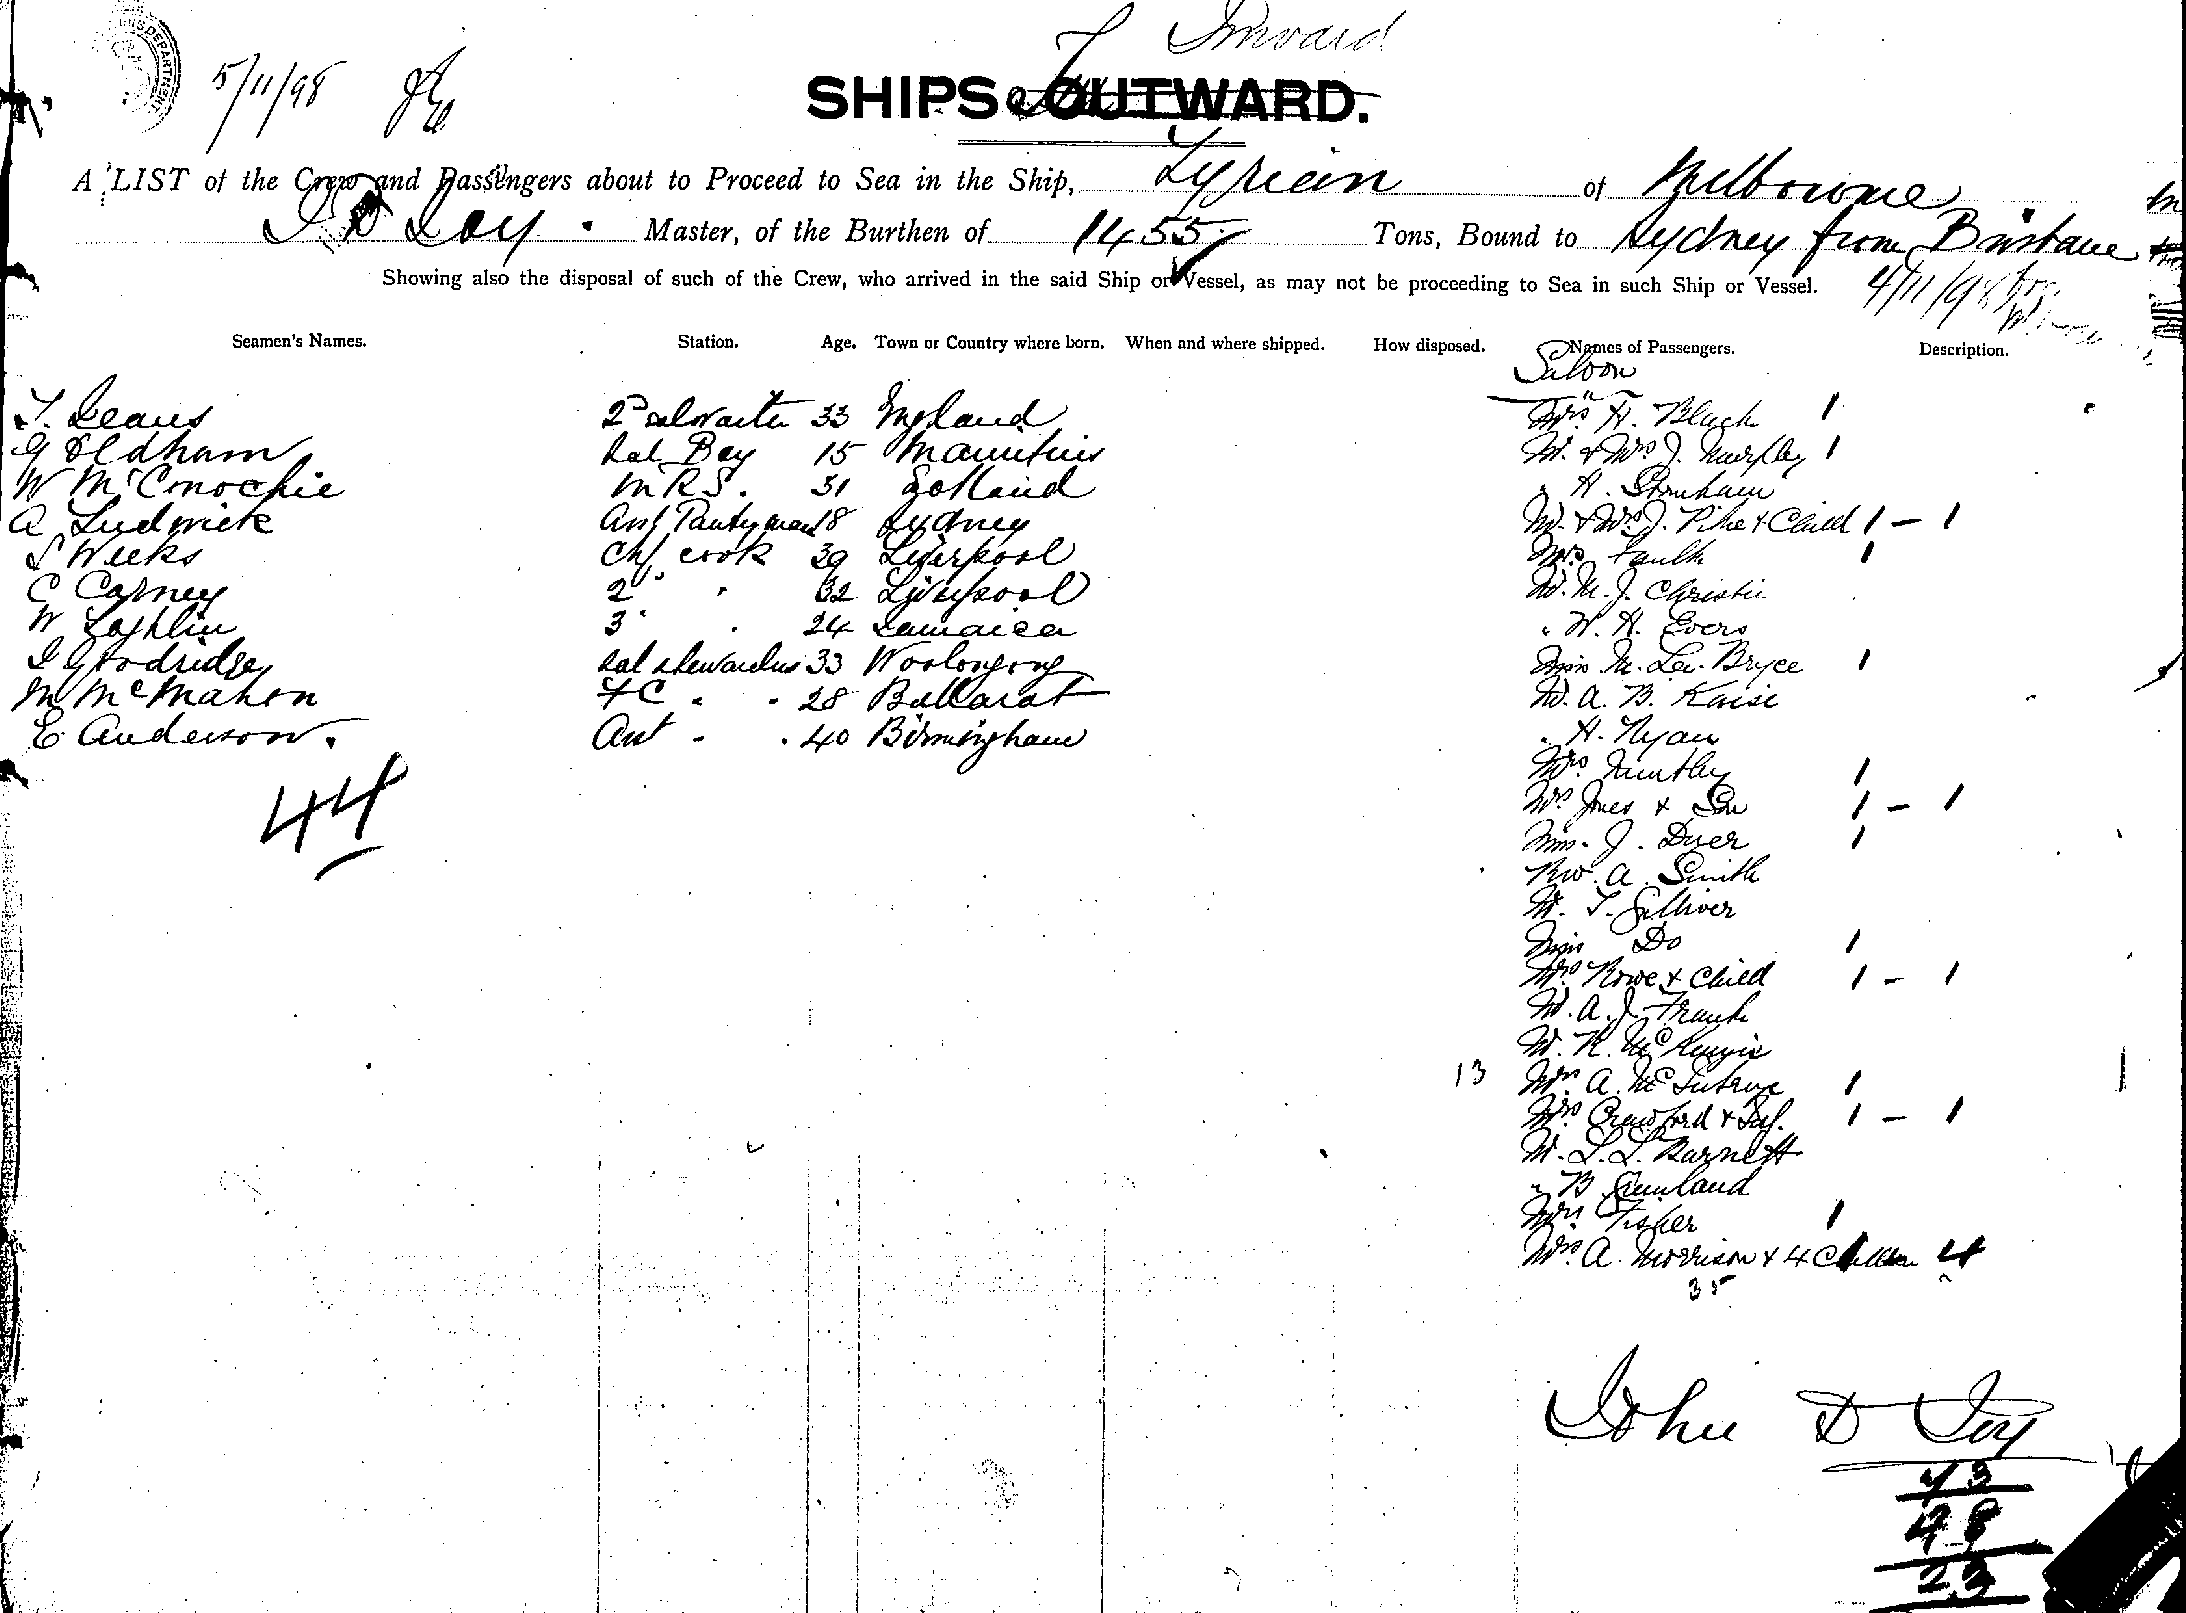 Inward
5/11/98
SHIPS OUTWARD.
A LIST of the Crew and Passengers about to Proceed to Sea in the Ship, Tyrian of Melbourne
J D Loy Master, of the Burthen of 1455 Tons, Bound to Sydney from Brisbane
Showing also the disposal of such of the Crew, who arrived in the said Ship or Vessel, as may not be proceeding to Sea in such Ship or Vessel. 4/11/98
Seamen's Names. Station. Age. Town or Country where born. When and where shipped. How disposed. Names of Passengers. Description.
Saloon
T. Deans 2nd salwaiter 33 England
G Oldham Sal Boy 15 Mauritius
W McConochie M R S. 31 Scotland
A Ludwick Ast Pantryman 18 Sydney
S Weeks Chf cook 39 Liverpool
C Carney 2 " " 32 Liverpool
W Loghlin 3 " " 24 Jamaica
I Goodridge Sal stewardess 33 Woolongong
M McMahon FC " " 28 Ballarat
E Anderson. Ast " " 40 Birmingham
44
Mrs H. Black 1
Mr. & Mrs J. Murphy 1
" H. Stonham
Mr. & Mrs J. Pike & Child 1 - 1
Mrs Faulk 1
Mr. M. J. Christie
" W. H. Evers
Miss M. Lev. Bryce 1
Mr. A. B. Kaisi
" H. Ryan
Mrs Huntley 1
Mrs Jones & Son 1 - 1
Miss J. Dyer 1
Rev. A. Smith
Mr. T. Gulliver
Miss Do 1
Mrs Rowe & Child 1 - 1
Mr. A. J. Frank
Mr. R. McKenzie
13 Mrs A. McIntyre 1
Mrs Crawford & Inf. 1 - 1
Mr. L. L. Barnett
" B. Sunland
Mrs Fisher 1
Mrs A. Morrison & 4 Children 4
35
John D Loy
43
48
23